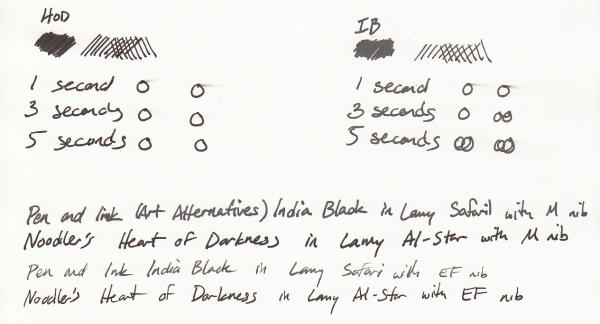 HOD IB
1 second 1 second
3 seconds 3 seconds
5 seconds 5 seconds
Pen and ink (Art Alternatives) India Black in Lamy Safari with M nib
Noodler's Heart of Darkness in Lamy Al-Star with M nib
Pen and Ink India Black in Lamy Safari with EF nib
Noodler's Heart of Darkness in Lamy Al-Star with EF nib